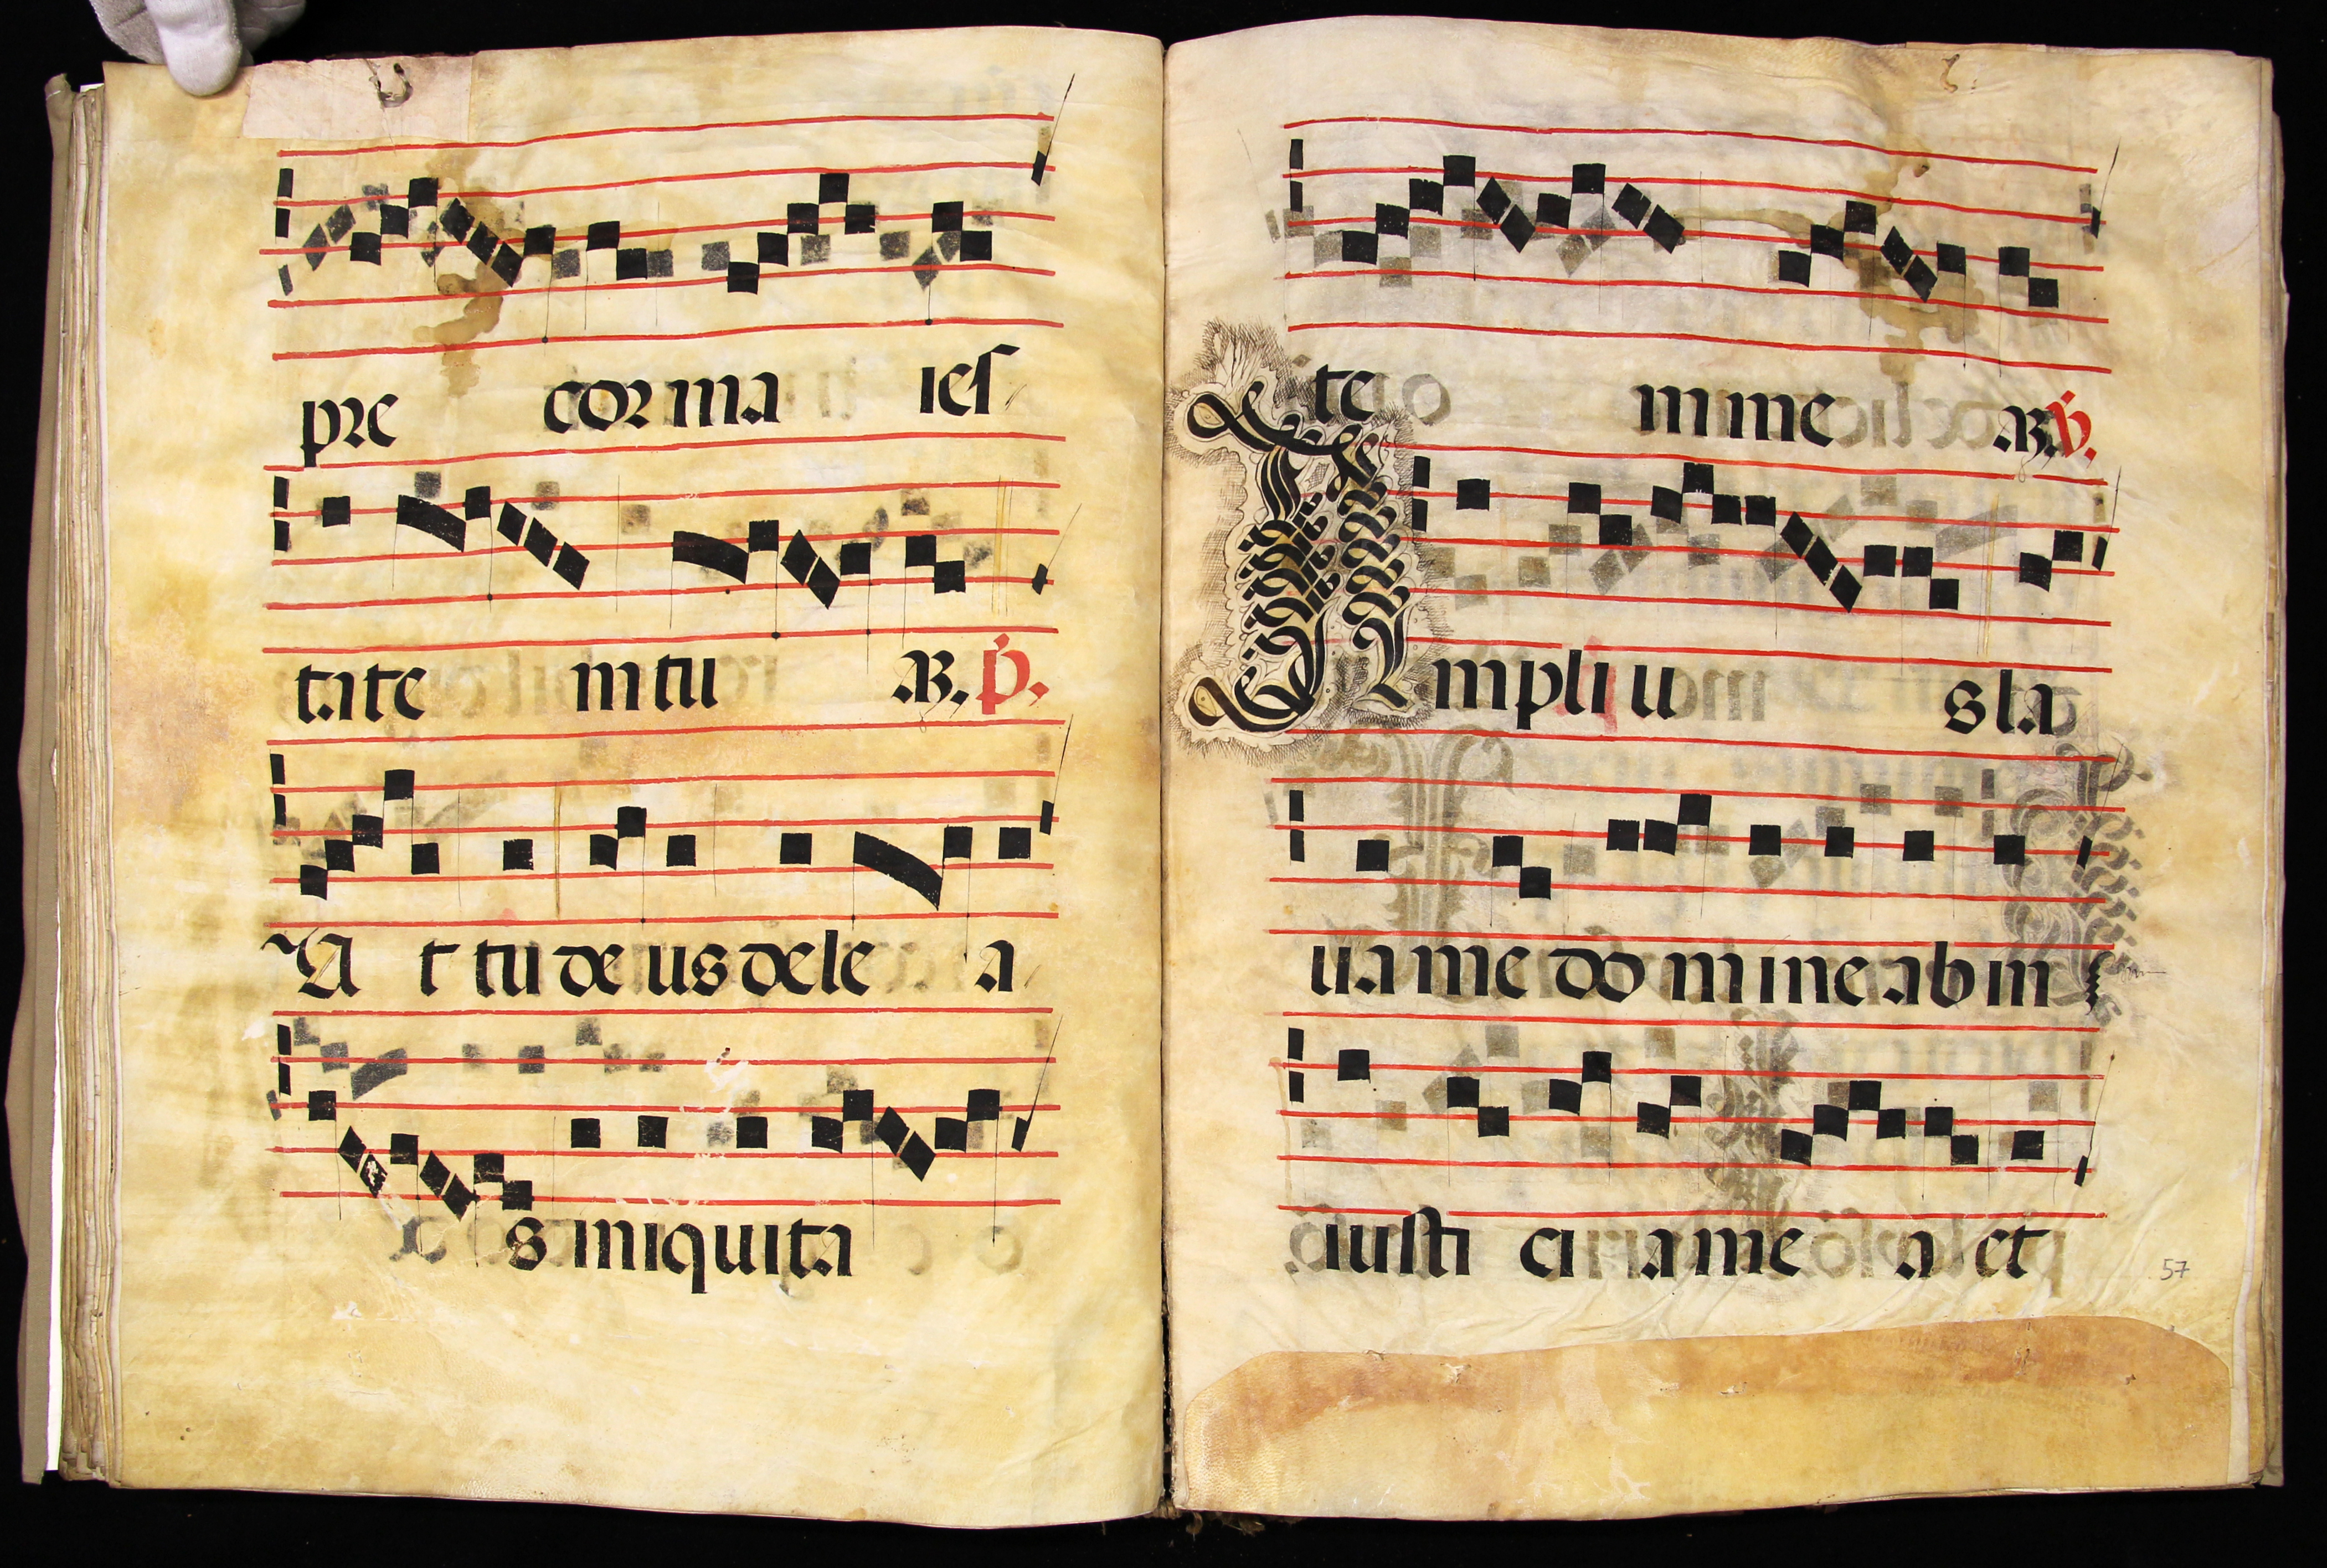 pre cor ma ies
ta te m tu AB. P.
A t tu de us de le a
s iniquita
te m me AB. V.
Ampli u s la
ua me do mine ab in
iusti ci a me a et
57